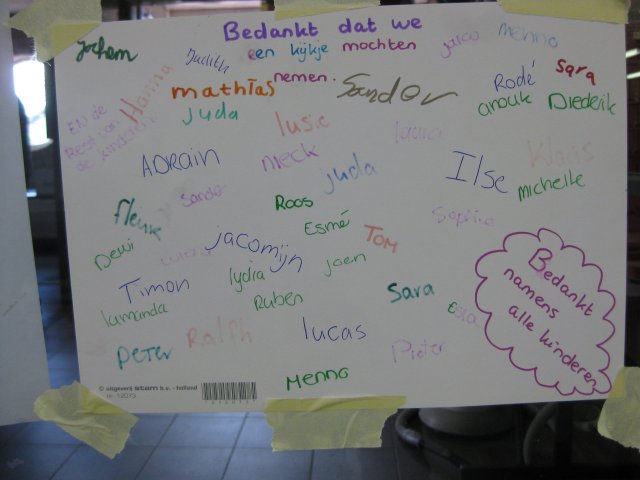 Bedankt dat we
een kijkje mochten
nemen.
Jochem
Judith
Jarco
Menno
Hanna
mathïas
Sander
Rodé
Sara
anouk
Diederik
EN de
Rest van
de kinderen
Juda
lusie
laura
ADRAIN
nieck
Juda
Ilse
Klaas
michelle
Sande
Roos
Fleur
Esmé
Tom
Sophia
Dewi
jacomijn
joen
Timon
lydia
Ruben
Sara
lamanda
Ralph
lucas
Peter
Pieter
Menno
Bedankt
namens
alle kinderen
© uitgeverij stam b.v. - holland
nr. 12073